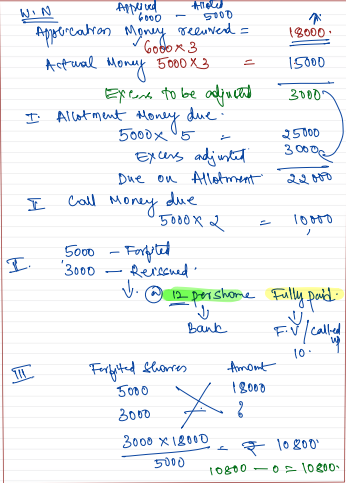 W.N Applied Alloted
6000 - 5000
Application Money received = 18000.
6000 x 3
Actual Money 5000 x 3 = 15000
Excess to be adjusted 3000
I. Allotment Money due.
5000 x 5 = 25000
Excess adjusted 3000
Due on Allotment 22000
II Call Money due
5000 x 2 = 10,000
II. 5000 - Forfited
3000 - Reissued.
@ 12 per share Fully paid.
Bank F.V / Called up
10.
III Forfited Shares Amount
5000 18000
3000 ?
3000 x 18000 = ₹ 10800.
5000
10800 - 0 = 10800.